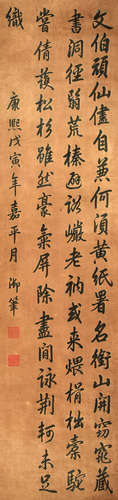 文伯頑仙儘自兼何須黃紙署名銜山開窈窕藏
書洞徑翳荒榛避謗巖老衲或來煨榾柮稾駝
嘗倩護松杉雖然豪氣屏除盡閒詠荊軻未足
饑
康熙戊寅年嘉平月 御筆